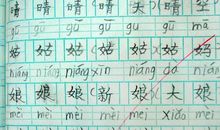 晴 晴 晴 天 晴 空
gū gū gū gū gū mā
姑 姑 姑 姑 姑 妈
niáng niáng niáng xīn niáng dà niáng
娘 娘 娘 新 娘 大 娘
mèi mèi mèi mèi xiǎo mèi